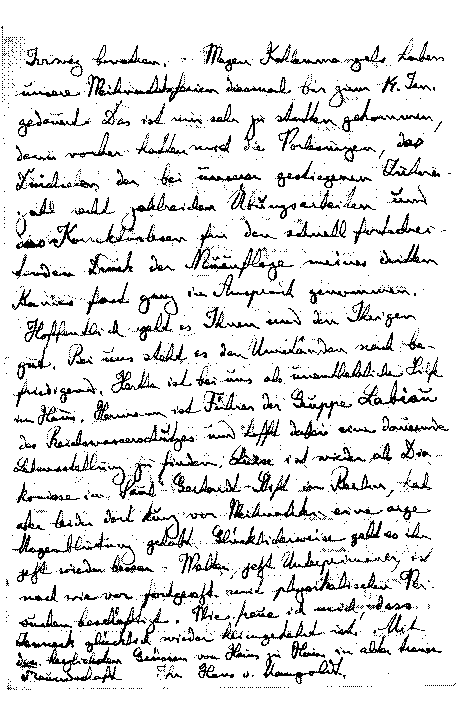 beraten. - Wegen Kohlenmangels haben
unsere Weihnachtsferien diesmal bis zum 14. Jan.
gedauert. Das ist mir sehr zu statten gekommen,
denn vorher hatten mich die Vorlesungen, das
Durchsehen der bei unserer gestiegenen Zuhörer-
zahl recht zahlreichen Übungsarbeiten und
das Korrekturlesen für den schnell fortschrei-
tenden Druck der Neuauflage meines dritten
Bandes fast ganz in Anspruch genommen.
Hoffentlich geht es Ihnen und den Ihrigen
gut. Bei uns steht es den Umständen nach be-
friedigend. Hertha ist bei uns als unentbehrliche Hilfe
im Haus. Hermann ist Führer der Gruppe Labiau
des Reichswasserschutzes und hofft dabei eine dauernde
Lebensstellung zu finden. ist wieder als Dia-
konisse im Paul-Gerhardt-Stift in Berlin, hat
aber leider dort kurz vor Weihnachten eine arge
Magenblutung gehabt. Glücklicherweise geht es ihr
jetzt wieder besser. Walter, jetzt Unterprimaner, ist
nach wie vor fortgesetzt mit physikalischen Ver-
suchen beschäftigt. Wie freue ich mich, dass
glücklich wieder heimgekehrt ist. Mit
den herzlichsten Grüssen von Haus zu Haus in alter treuer
Freundschaft Ihr Hans v. Mangoldt.